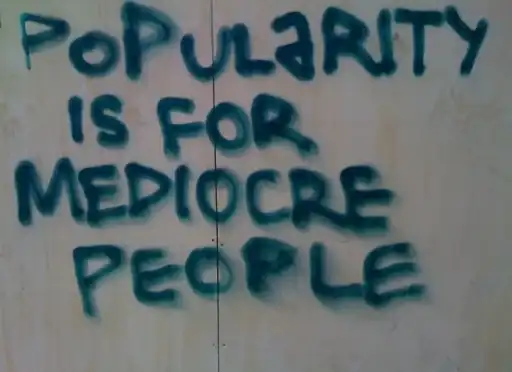 POPULaRITY
IS FOR
MEDIOCRE
PEOPLE